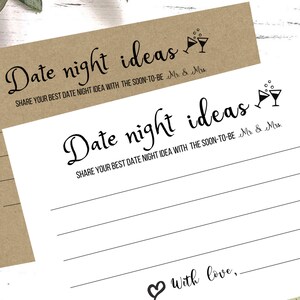 Date night ideas
SHARE YOUR BEST DATE NIGHT IDEA WITH THE SOON-TO-BE Mr. & Mrs.
Date night ideas
SHARE YOUR BEST DATE NIGHT IDEA WITH THE SOON-TO-BE Mr. & Mrs.
With love,